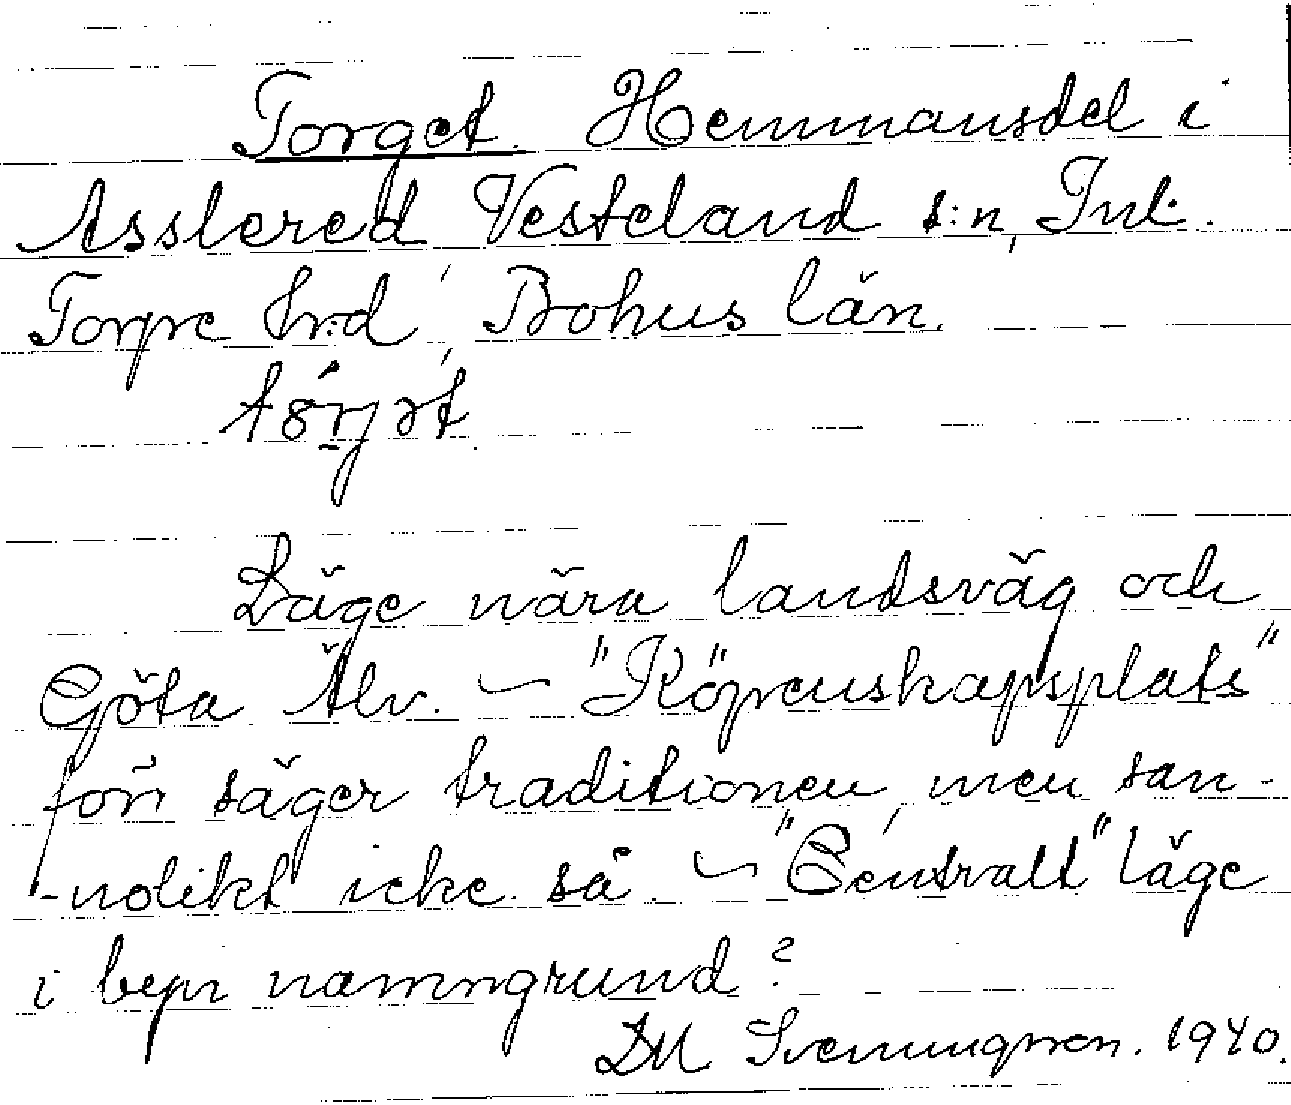 Torget. Hemmansdel i
Asslered Vesteland s:n, Inl.
Torpe hrd, Bohus län.
Läge nära landsväg och
Göta Älv. ~ "Köpenskapsplats"
förr säger traditionen, men san-
-nolikt icke så. ~ "Centralt" läge
i byn namngrund?
DM Svenungsson. 1940.